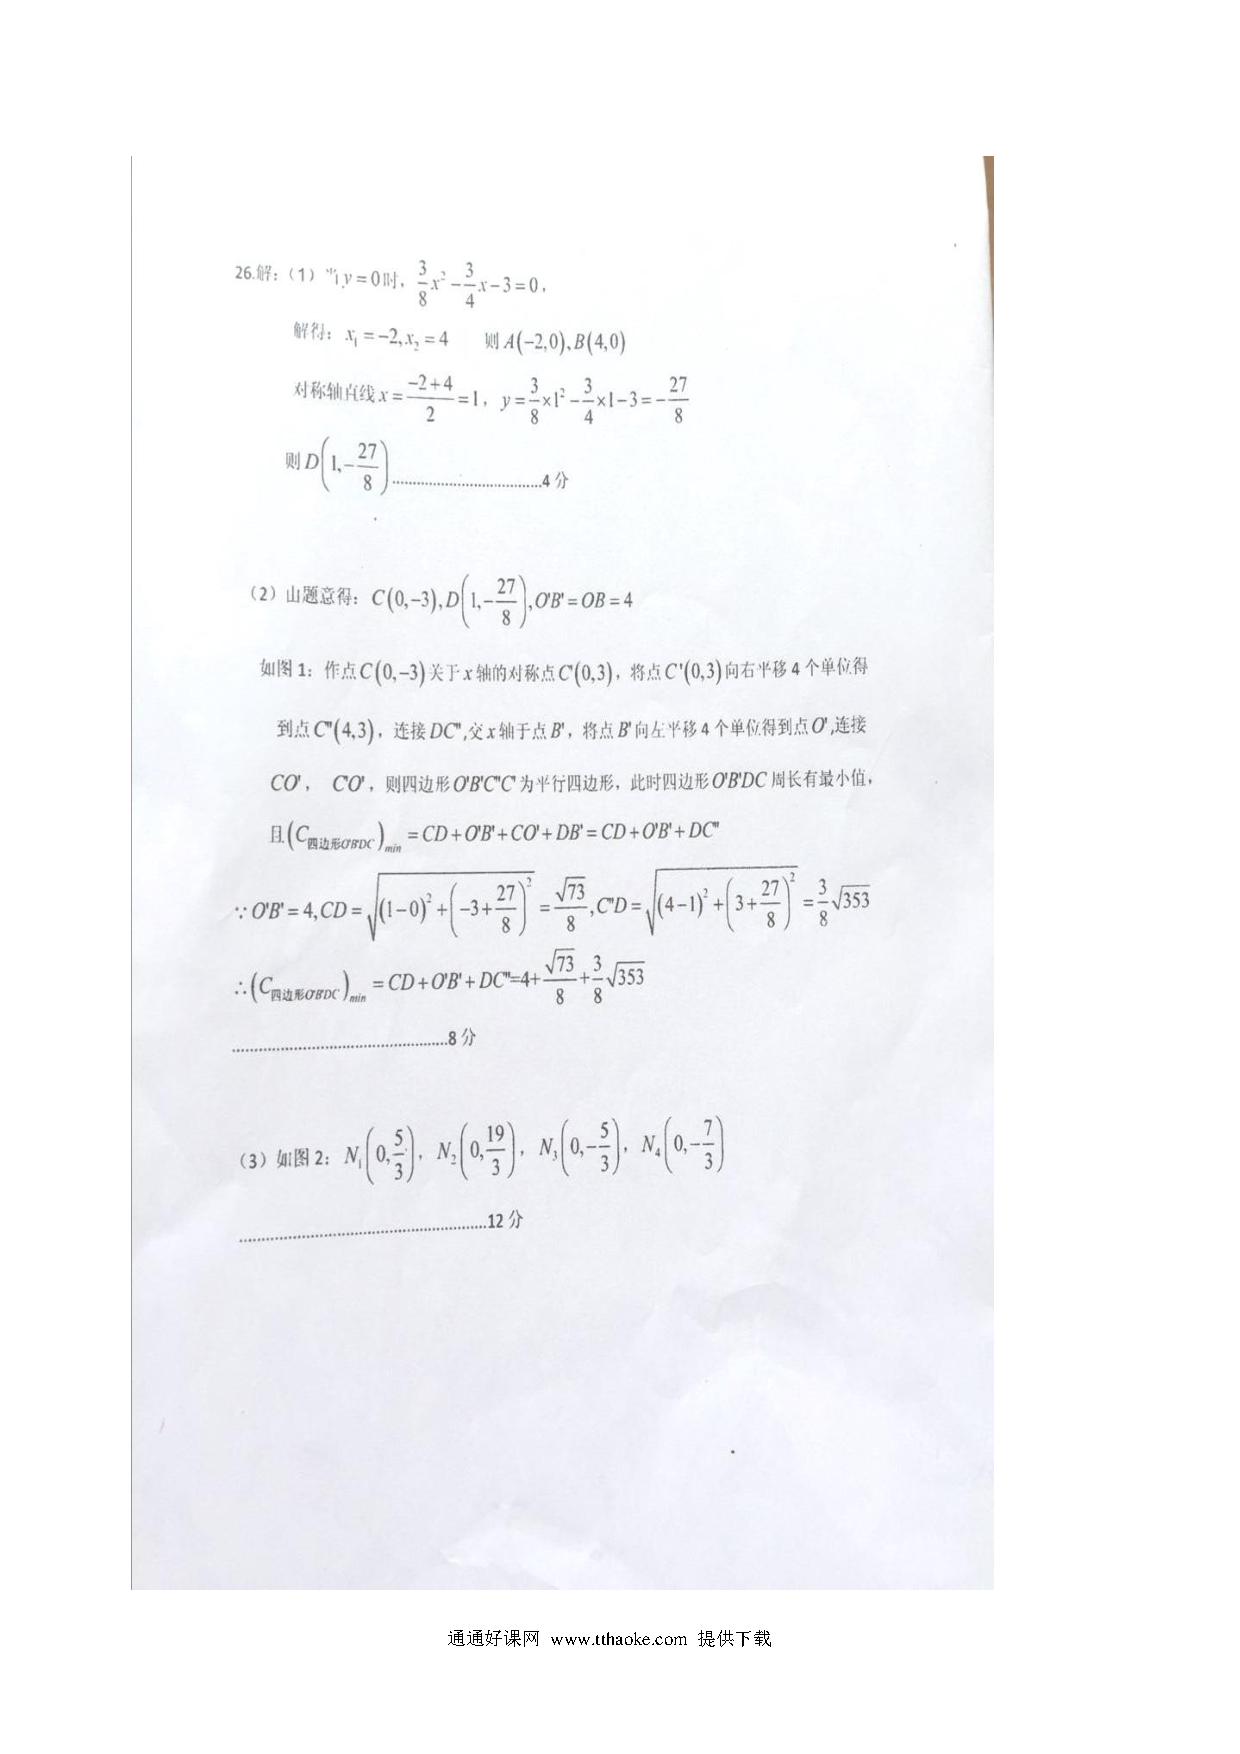 26.解：（1）当y=0时，3/8x²-3/4x-3=0，
解得：x₁=-2,x₂=4 则A(-2,0)、B(4,0)
对称轴直线x=(-2+4)/2=1，y=3/8×1²-3/4×1-3=-27/8
则D(1,-27/8)........................4分
（2）由题意得：C(0,-3),D(1,-27/8),O'B'=OB=4
如图1：作点C(0,-3)关于x轴的对称点C'(0,3)，将点C'(0,3)向右平移4个单位得
到点C"(4,3)，连接DC",交x轴于点B'，将点B'向左平移4个单位得到点O',连接
CO'，C'O'，则四边形O'B'C"C'为平行四边形，此时四边形O'B'DC周长有最小值，
且(C四边形O'B'DC)min=CD+O'B'+CO'+DB'=CD+O'B'+DC"
∵O'B'=4,CD=√((1-0)²+(-3+27/8)²)=√73/8,C"D=√((4-1)²+(3+27/8)²)=3/8√353
∴(C四边形O'B'DC)min=CD+O'B'+DC"=4+√73/8+3/8√353
........................8分
（3）如图2：N₁(0,5/3)，N₂(0,19/3)，N₃(0,-5/3)，N₄(0,-7/3)
........................12分
通通好课网 www.tthaoke.com 提供下载